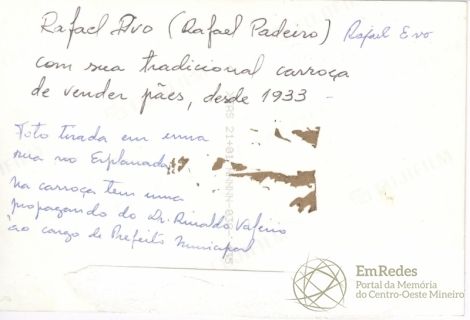 Rafael Ivo (Rafael Padeiro) Rafael Evo
com sua tradicional carroça
de vender pães, desde 1933 -
Foto tirada em uma
rua no Esplanada
Na carroça tem uma
propaganda do Dr. Rinaldo Valério
ao cargo de Prefeito Municipal
EmRedes
Portal da Memória
do Centro-Oeste Mineiro